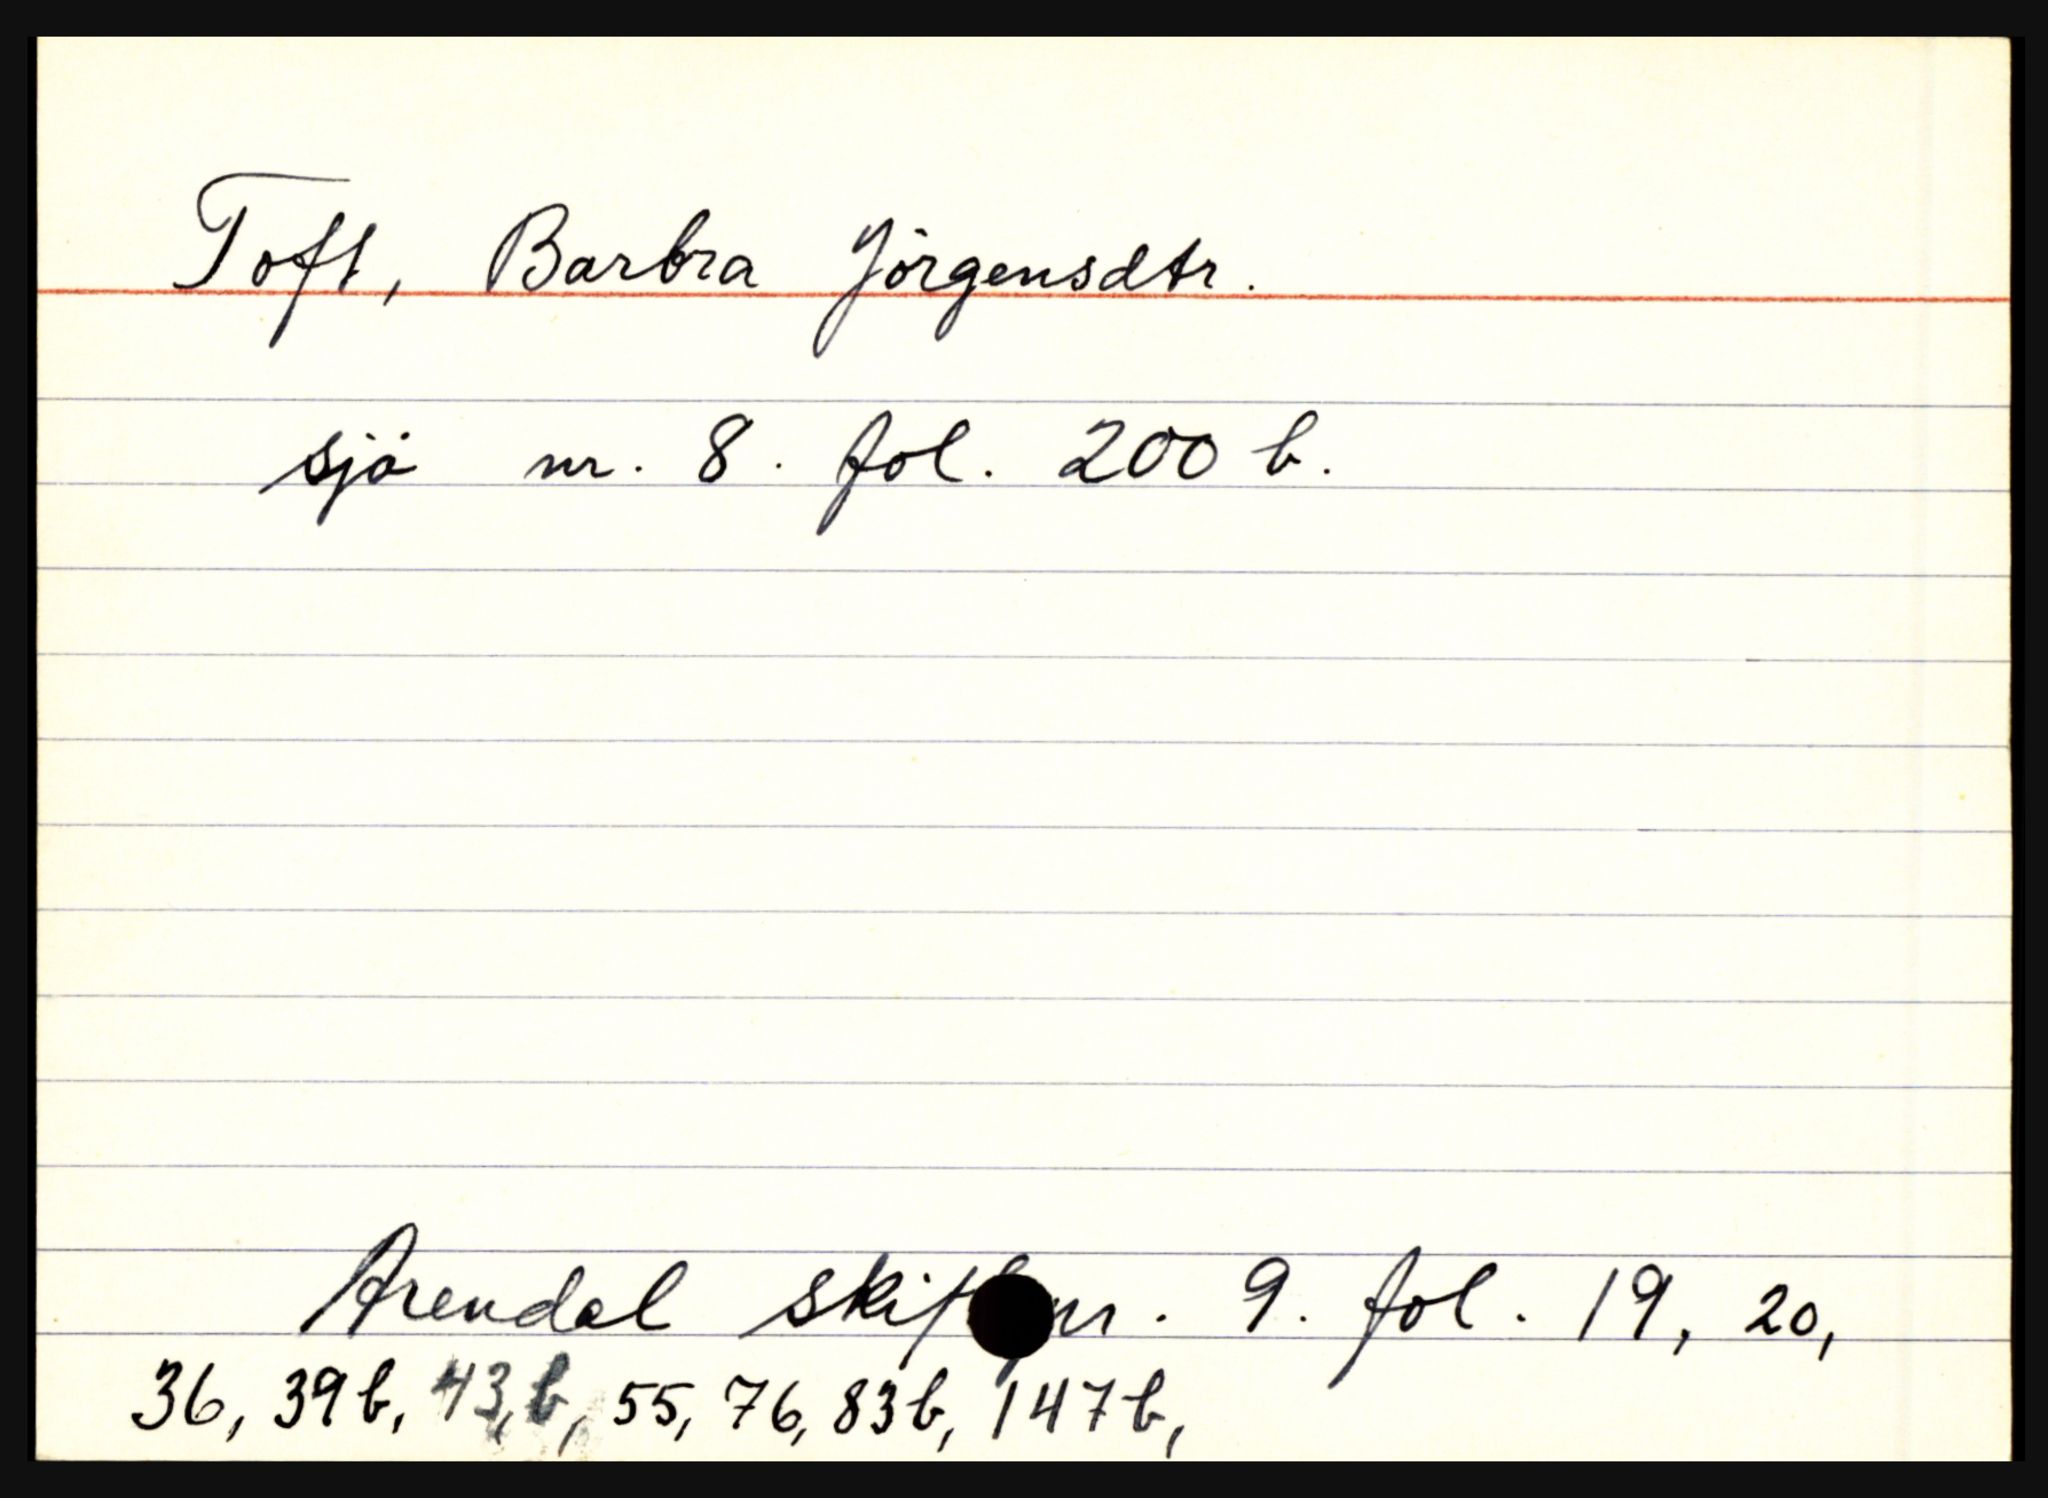 Toft, Barbra Jörgensdtr.
sjö nr. 8. fol. 200 b.
Arendal nr. 9. fol. 19, 20,
36, 39b, 43,b, 55, 76, 83b, 147b,